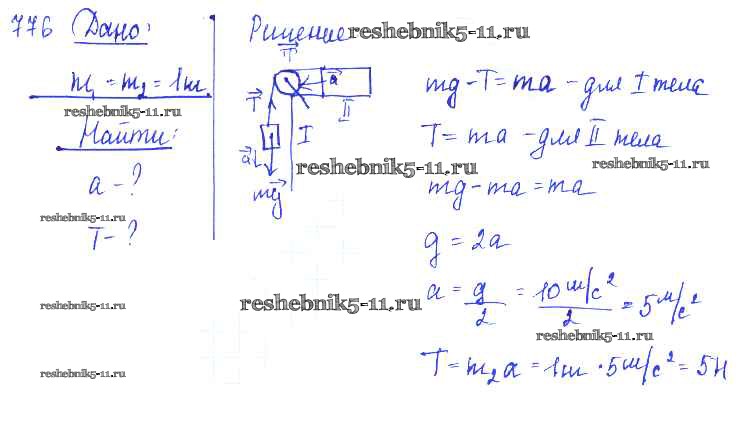 776 Дано:
m₁ = m₂ = 1кг
reshebnik5-11.ru
Найти:
a - ?
reshebnik5-11.ru
T - ?
reshebnik5-11.ru
reshebnik5-11.ru
Решение
reshebnik5-11.ru
T
a
T
II
1
I
a
mg
reshebnik5-11.ru
reshebnik5-11.ru
mg - T = ma - для I тела
T = ma - для II тела
reshebnik5-11.ru
mg - ma = ma
g = 2a
a = g/2 = 10 м/с²/2 = 5 м/с²
reshebnik5-11.ru
T = m₂a = 1кг · 5 м/с² = 5Н